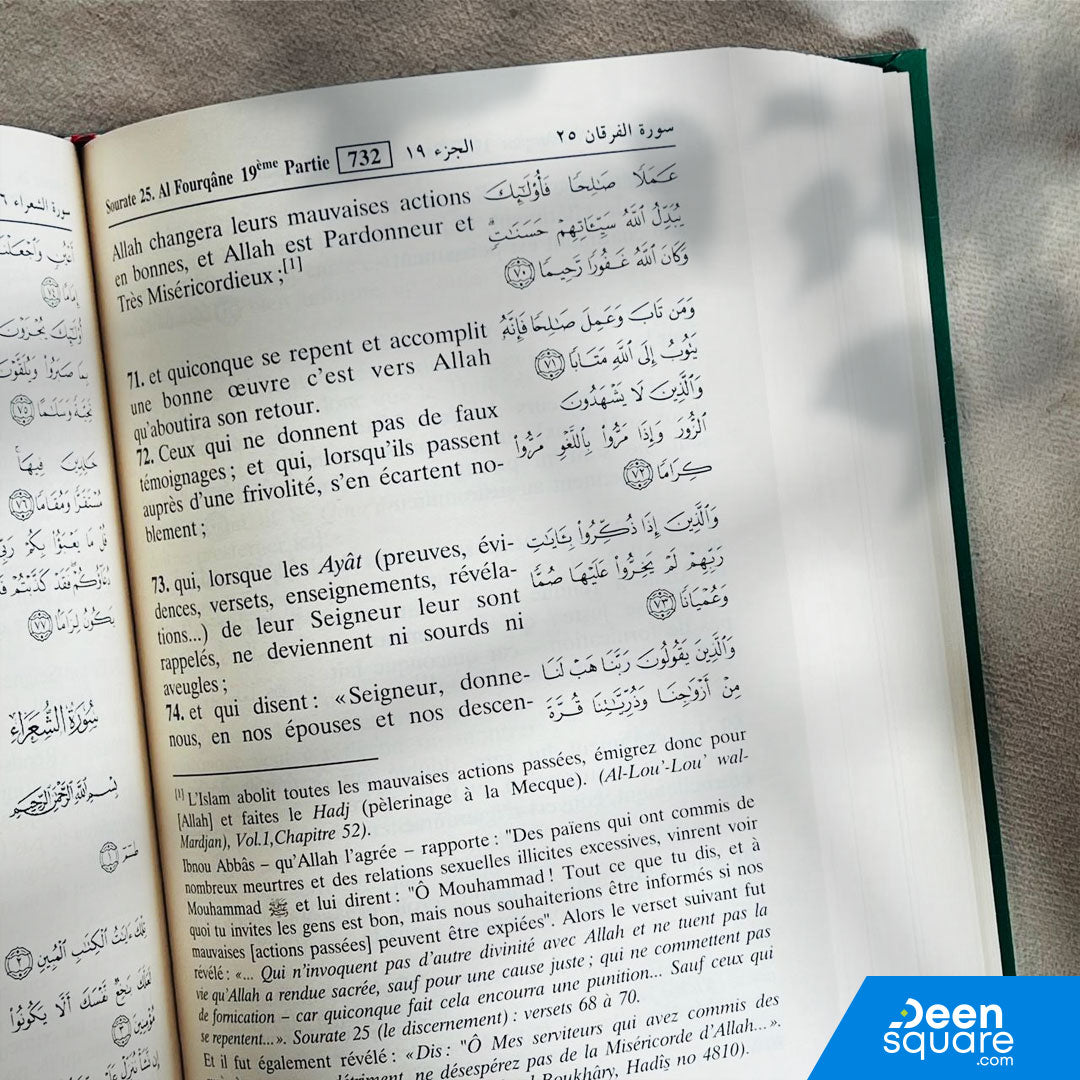 Sourate 25. Al Fourqâne 19ème Partie 732 الجزء ١٩ سورة الفرقان ٢٥
Allah changera leurs mauvaises actions
en bonnes, et Allah est Pardonneur et
Très Miséricordieux ;[1]
71. et quiconque se repent et accomplit
une bonne œuvre c’est vers Allah
qu’aboutira son retour.
72. Ceux qui ne donnent pas de faux
témoignages ; et qui, lorsqu’ils passent
auprès d’une frivolité, s’en écartent no-
blement ;
73. qui, lorsque les Ayât (preuves, évi-
dences, versets, enseignements, révéla-
tions...) de leur Seigneur leur sont
rappelés, ne deviennent ni sourds ni
aveugles ;
74. et qui disent : «Seigneur, donne-
nous, en nos épouses et nos descen-
عَمَلًا صَٰلِحًا فَأُو۟لَٰٓئِكَ
يُبَدِّلُ ٱللَّهُ سَيِّـَٔاتِهِمْ حَسَنَٰتٍ ۗ
وَكَانَ ٱللَّهُ غَفُورًا رَّحِيمًا ٧٠
وَمَن تَابَ وَعَمِلَ صَٰلِحًا فَإِنَّهُۥ
يَتُوبُ إِلَى ٱللَّهِ مَتَابًا ٧١
وَٱلَّذِينَ لَا يَشْهَدُونَ
ٱلزُّورَ وَإِذَا مَرُّوا۟ بِٱللَّغْوِ مَرُّوا۟
كِرَامًا ٧٢
وَٱلَّذِينَ إِذَا ذُكِّرُوا۟ بِـَٔايَٰتِ
رَبِّهِمْ لَمْ يَخِرُّوا۟ عَلَيْهَا صُمًّا
وَعُمْيَانًا ٧٣
وَٱلَّذِينَ يَقُولُونَ رَبَّنَا هَبْ لَنَا
مِنْ أَزْوَٰجِنَا وَذُرِّيَّٰتِنَا قُرَّةَ
[1] L’Islam abolit toutes les mauvaises actions passées, émigrez donc pour
[Allah] et faites le Hadj (pèlerinage à la Mecque). (Al-Lou’-Lou’ wal-
Mardjan), Vol.1,Chapitre 52).
Ibnou Abbâs – qu’Allah l’agrée – rapporte : "Des païens qui ont commis de
nombreux meurtres et des relations sexuelles illicites excessives, vinrent voir
Mouhammad ﷺ et lui dirent : "Ô Mouhammad ! Tout ce que tu dis, et à
quoi tu invites les gens est bon, mais nous souhaiterions être informés si nos
mauvaises [actions passées] peuvent être expiées". Alors le verset suivant fut
révélé : «... Qui n’invoquent pas d’autre divinité avec Allah et ne tuent pas la
vie qu’Allah a rendue sacrée, sauf pour une cause juste ; qui ne commettent pas
de fornication – car quiconque fait cela encourra une punition... Sauf ceux qui
se repentent...». Sourate 25 (le discernement) : versets 68 à 70.
Et il fut également révélé : «Dis : "Ô Mes serviteurs qui avez commis des
ne désespérez pas de la Miséricorde d’Allah...».
Hadîs no 4810).
سورة الشعراء
إِمَامًا ٧٤
بِمَا صَبَرُوا۟ وَيُلَقَّوْنَ
تَحِيَّةً وَسَلَٰمًا ٧٥
خَٰلِدِينَ فِيهَا ۚ
مُسْتَقَرًّا وَمُقَامًا ٧٦
قُلْ مَا يَعْبَؤُا۟ بِكُمْ رَبِّى
فَقَدْ كَذَّبْتُمْ
يَكُونُ لِزَامًۢا ٧٧
سُورَةُ الشُّعَرَاءِ
بِسْمِ ٱللَّهِ ٱلرَّحْمَٰنِ ٱلرَّحِيمِ
طسٓمٓ ١
تِلْكَ ءَايَٰتُ ٱلْكِتَٰبِ ٱلْمُبِينِ ٢
لَعَلَّكَ بَٰخِعٌ نَّفْسَكَ أَلَّا يَكُونُوا۟
مُؤْمِنِينَ ٣
إِن نَّشَأْ نُنَزِّلْ
Deen
square
.com